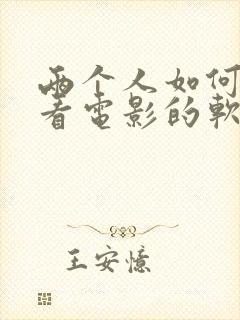 两个人如何
看電影的軟
王安憶